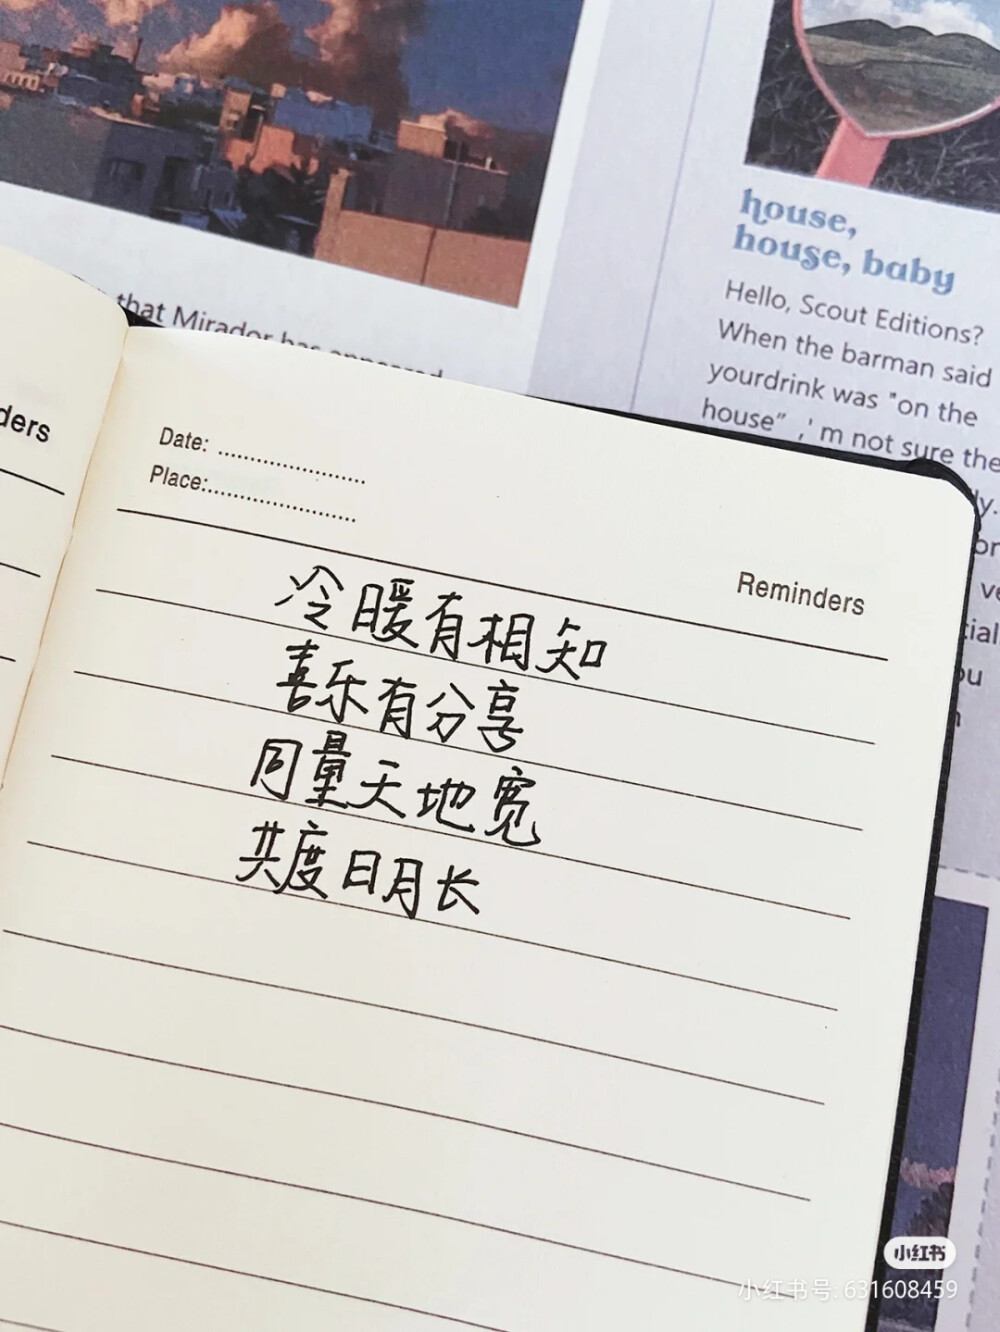 that Mirador has appeared
house,
house, baby
Hello, Scout Editions?
When the barman said
yourdrink was "on the
house" ,' m not sure the
ly.
ders
Date:
Place:
Reminders
冷暖有相知
喜乐有分享
同量天地宽
共度日月长
小红书
小红书号: 631608459